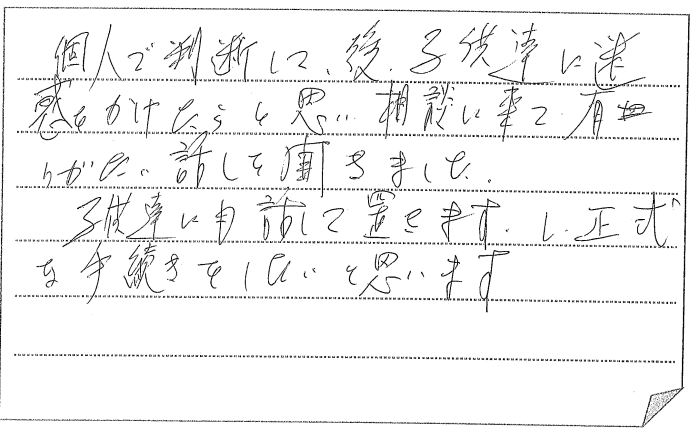 個人で判断して、後、子供達に迷
惑をかけたらと思い相談に来て、有
りがたい話しを聞きました。
子供達にも話して置きます。し、正式
な手続きをしたいと思います